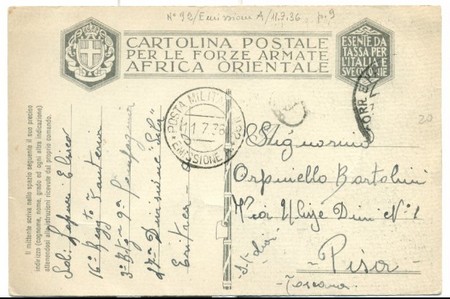 N° 98/Emissione A/11.7.36 p. 9
CARTOLINA POSTALE
PER LE FORZE ARMATE
AFRICA ORIENTALE
ESENTE DA
TASSA PER
L'ITALIA E
SVE COLONIE
POSTA MILITARE
11.7.36
EMISSIONE
20
Il mittente scriva nello spazio seguente il suo preciso
indirizzo (cognome, nome, grado ed ogni altra indicazione)
attenendosi alle istruzioni ricevute dal proprio comando.
16° Regg.to Fanteria
3° Btg. 9ª Compagnia
Divisione "Sila"
Eritrea
Signorino
Orpinello Bartolini
Via Ulisse Dini N° 1
Pisa
Italia
Toscana